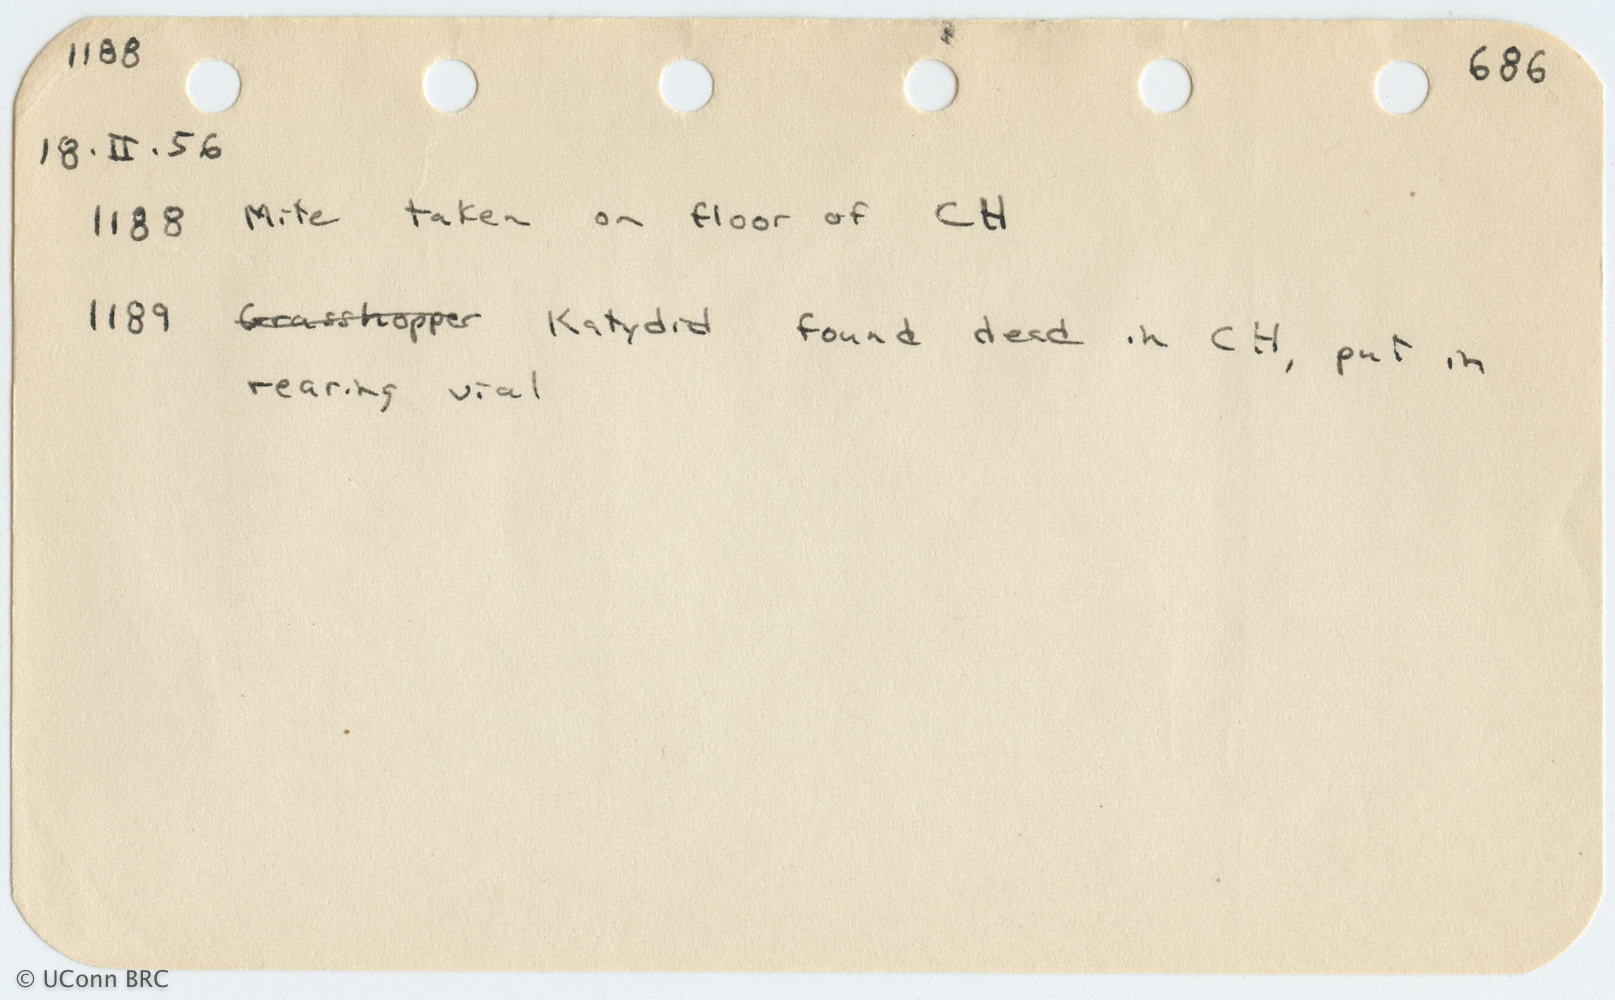 1188 686
18.II.56
1188 Mite taken on floor of CH
1189 Grasshopper Katydid found dead in CH, put in
rearing vial
© UConn BRC